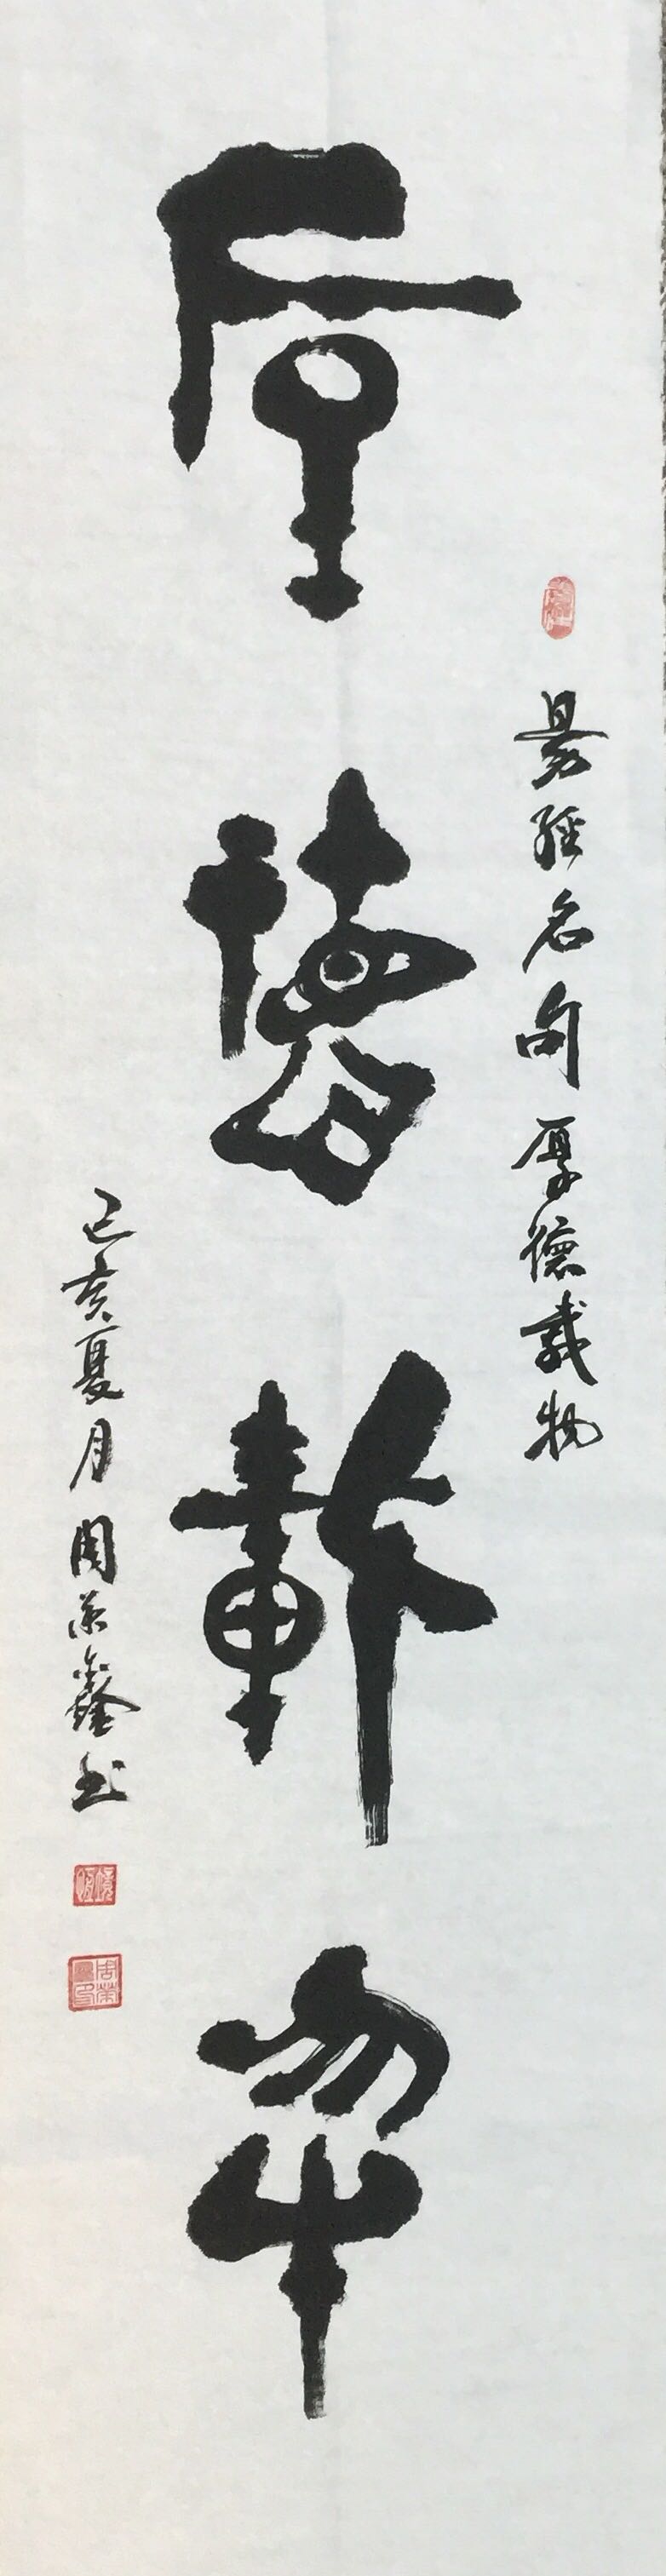 易經名句厚德載物
厚德載物
己亥夏月周榮鑫書